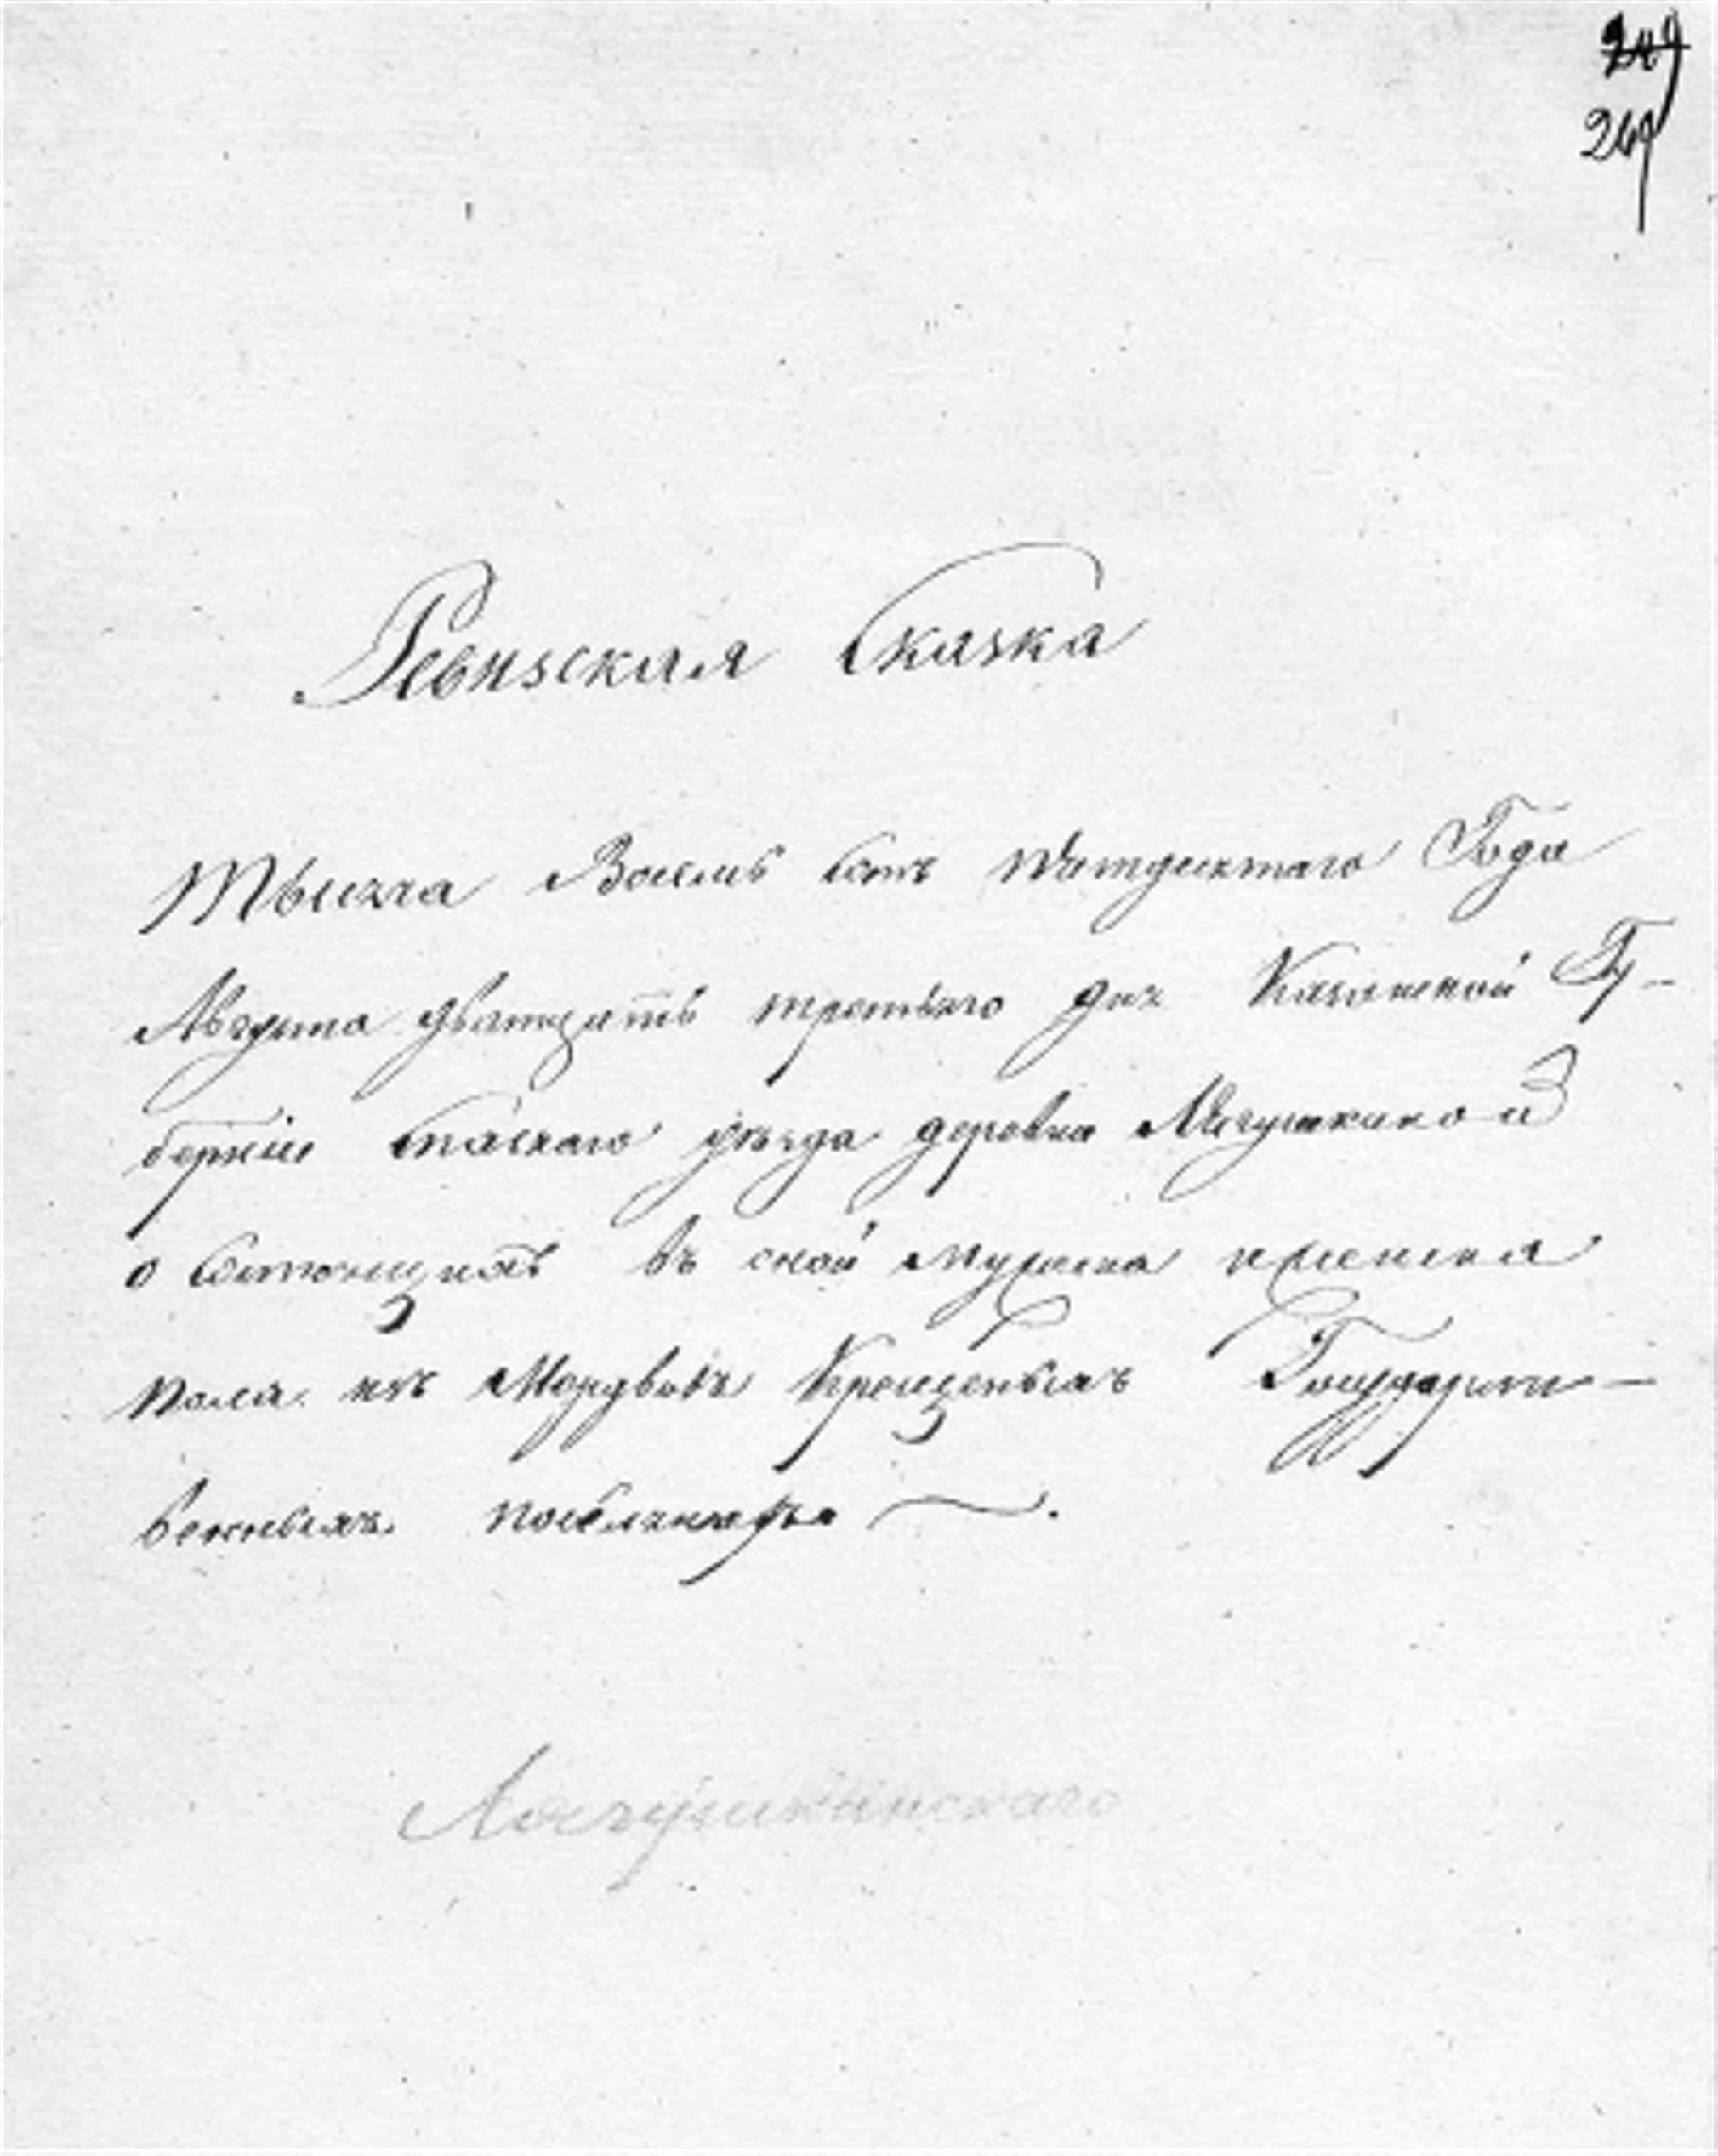 269
Ревизская Сказка
Тысяча Восемь сотъ Пятдесятаго Года
Августа дватцать третьяго дня Казанской Гу-
берніи Спаскаго уѣзда деревни
о состоящихъ въ оной мужеска и женска
пола изъ Мордвовъ Крещеныхъ Государст-
венныхъ поселянахъ